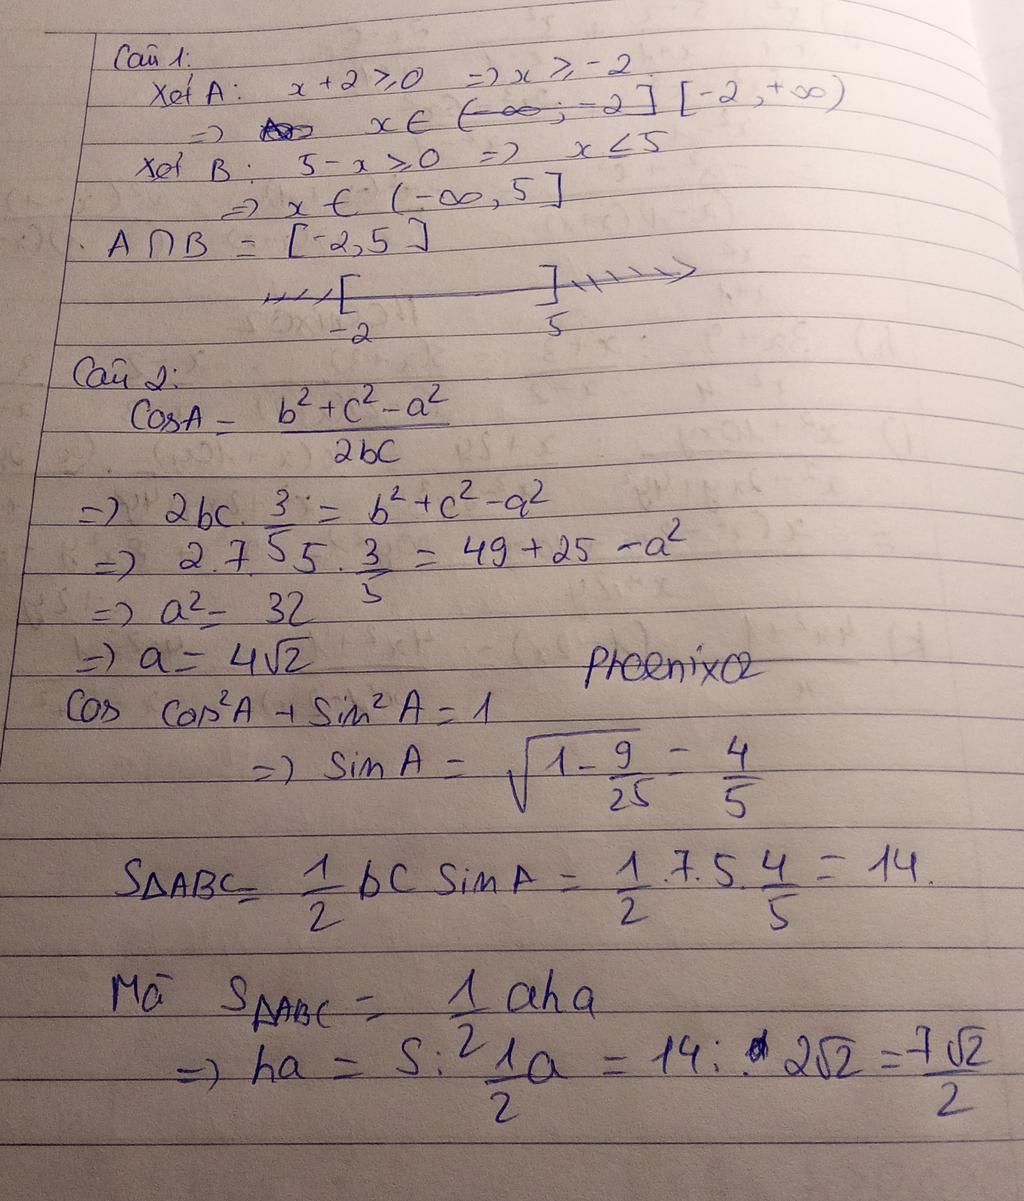 Câu 1:
Xét A: x + 2 ⩾ 0 => x ⩾ -2
=> x ∈ (-∞; -2] [-2, +∞)
Xét B: 5 - x ⩾ 0 => x < 5
=> x ∈ (-∞, 5]
A ∩ B = [-2, 5]
-2 5
Câu 2:
CosA = (b² + c² - a²)/(2bc)
=> 2bc. 3/5 = b² + c² - a²
=> 2.7.5. 3/5 = 49 + 25 - a²
=> a² = 32
=> a = 4√2
Phoenixa
Cos Cos²A + Sin²A = 1
=> sin A = √(1 - 9/25) = 4/5
SΔABC = 1/2 bC Sin A = 1/2 .7.5. 4/5 = 14.
Mà SΔABC = 1/2 aha
=> ha = S: 1/2 a = 14: 2√2 = 7√2/2